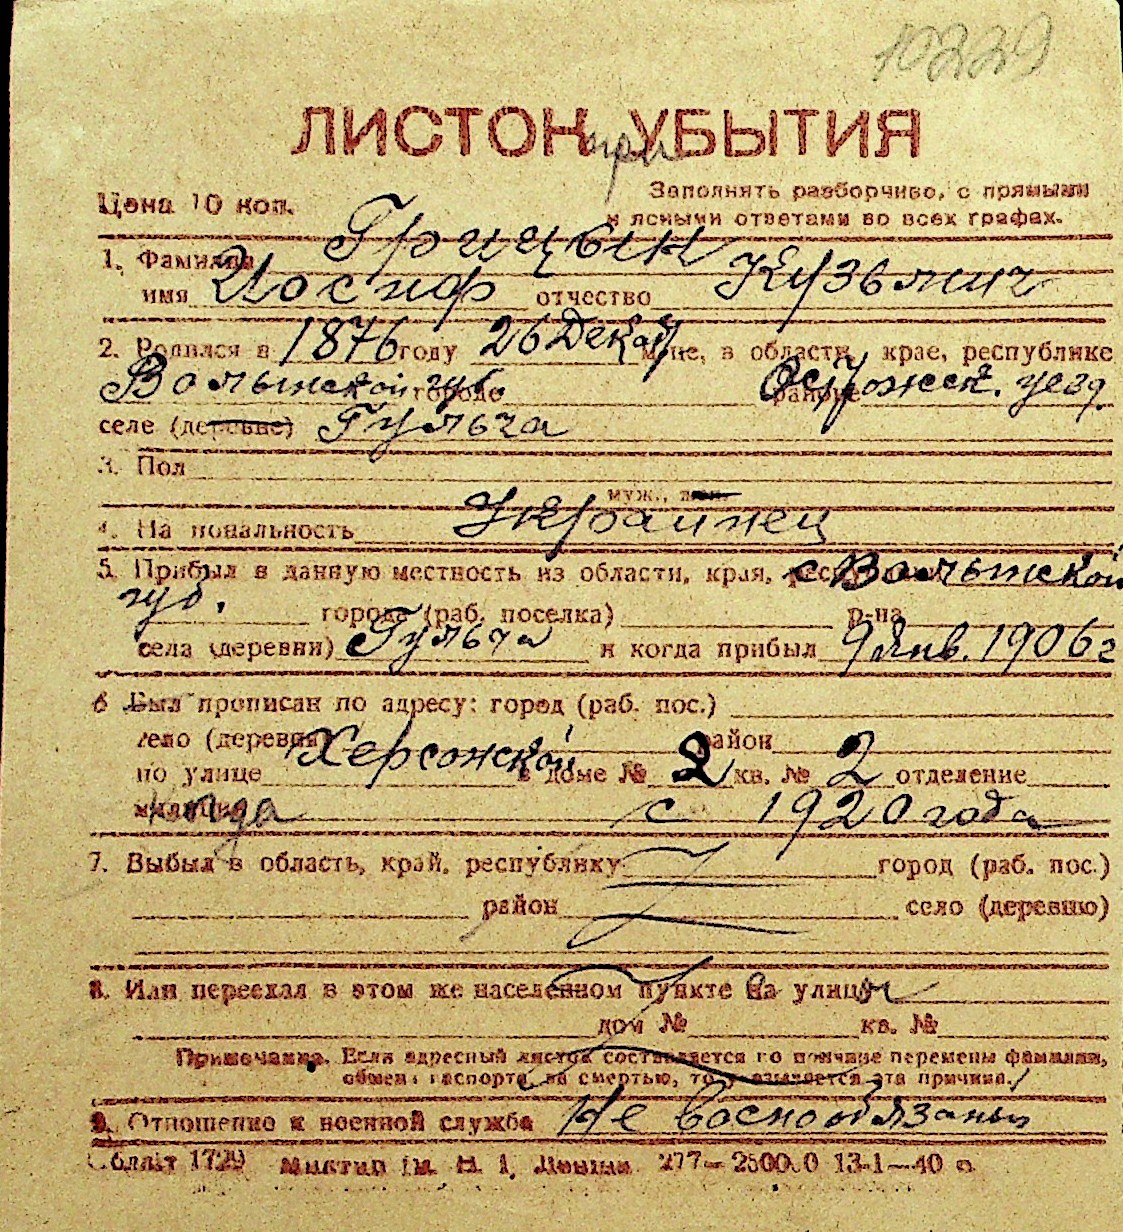 10229
ЛИСТОК УБЫТИЯ
Цена 10 коп.
Заполнять разборчиво, с прямыми
и ясными ответами во всех графах.
1. Фамилия Грицын
имя Иосиф отчество Кузьмич
2. Родился в 1876 году 26 Декаб. м-це, в области, крае, республике
Волынской губ. городе Острожск. районе уезд.
селе (деревне) Гульча
3. Пол
муж., жен.
4. Национальность Украинец
5. Прибыл в данную местность из области, края, республики с Волынской
губ. города (раб. поселка) р-на
села (деревни) Гульча и когда прибыл 9 янв. 1906 г
6 Был прописан по адресу: город (раб. пос.)
село (деревня) район
по улице Херсонской в доме № 2 кв. № 2 отделение
милиции с 1920 года
7. Выбыл в область, край, республику город (раб. пос.)
район село (деревню)
8. Или переехал в этом же населенном пункте на улицу
дом № кв. №
Примечание. Если адресный листок составляется по причине перемены фамилии,
обмена паспорта, за смертью, то указывается эта причина.
9. Отношение к военной службе Не воснообязаный
Обллит 1729 277— 250000 13-1—40 г.